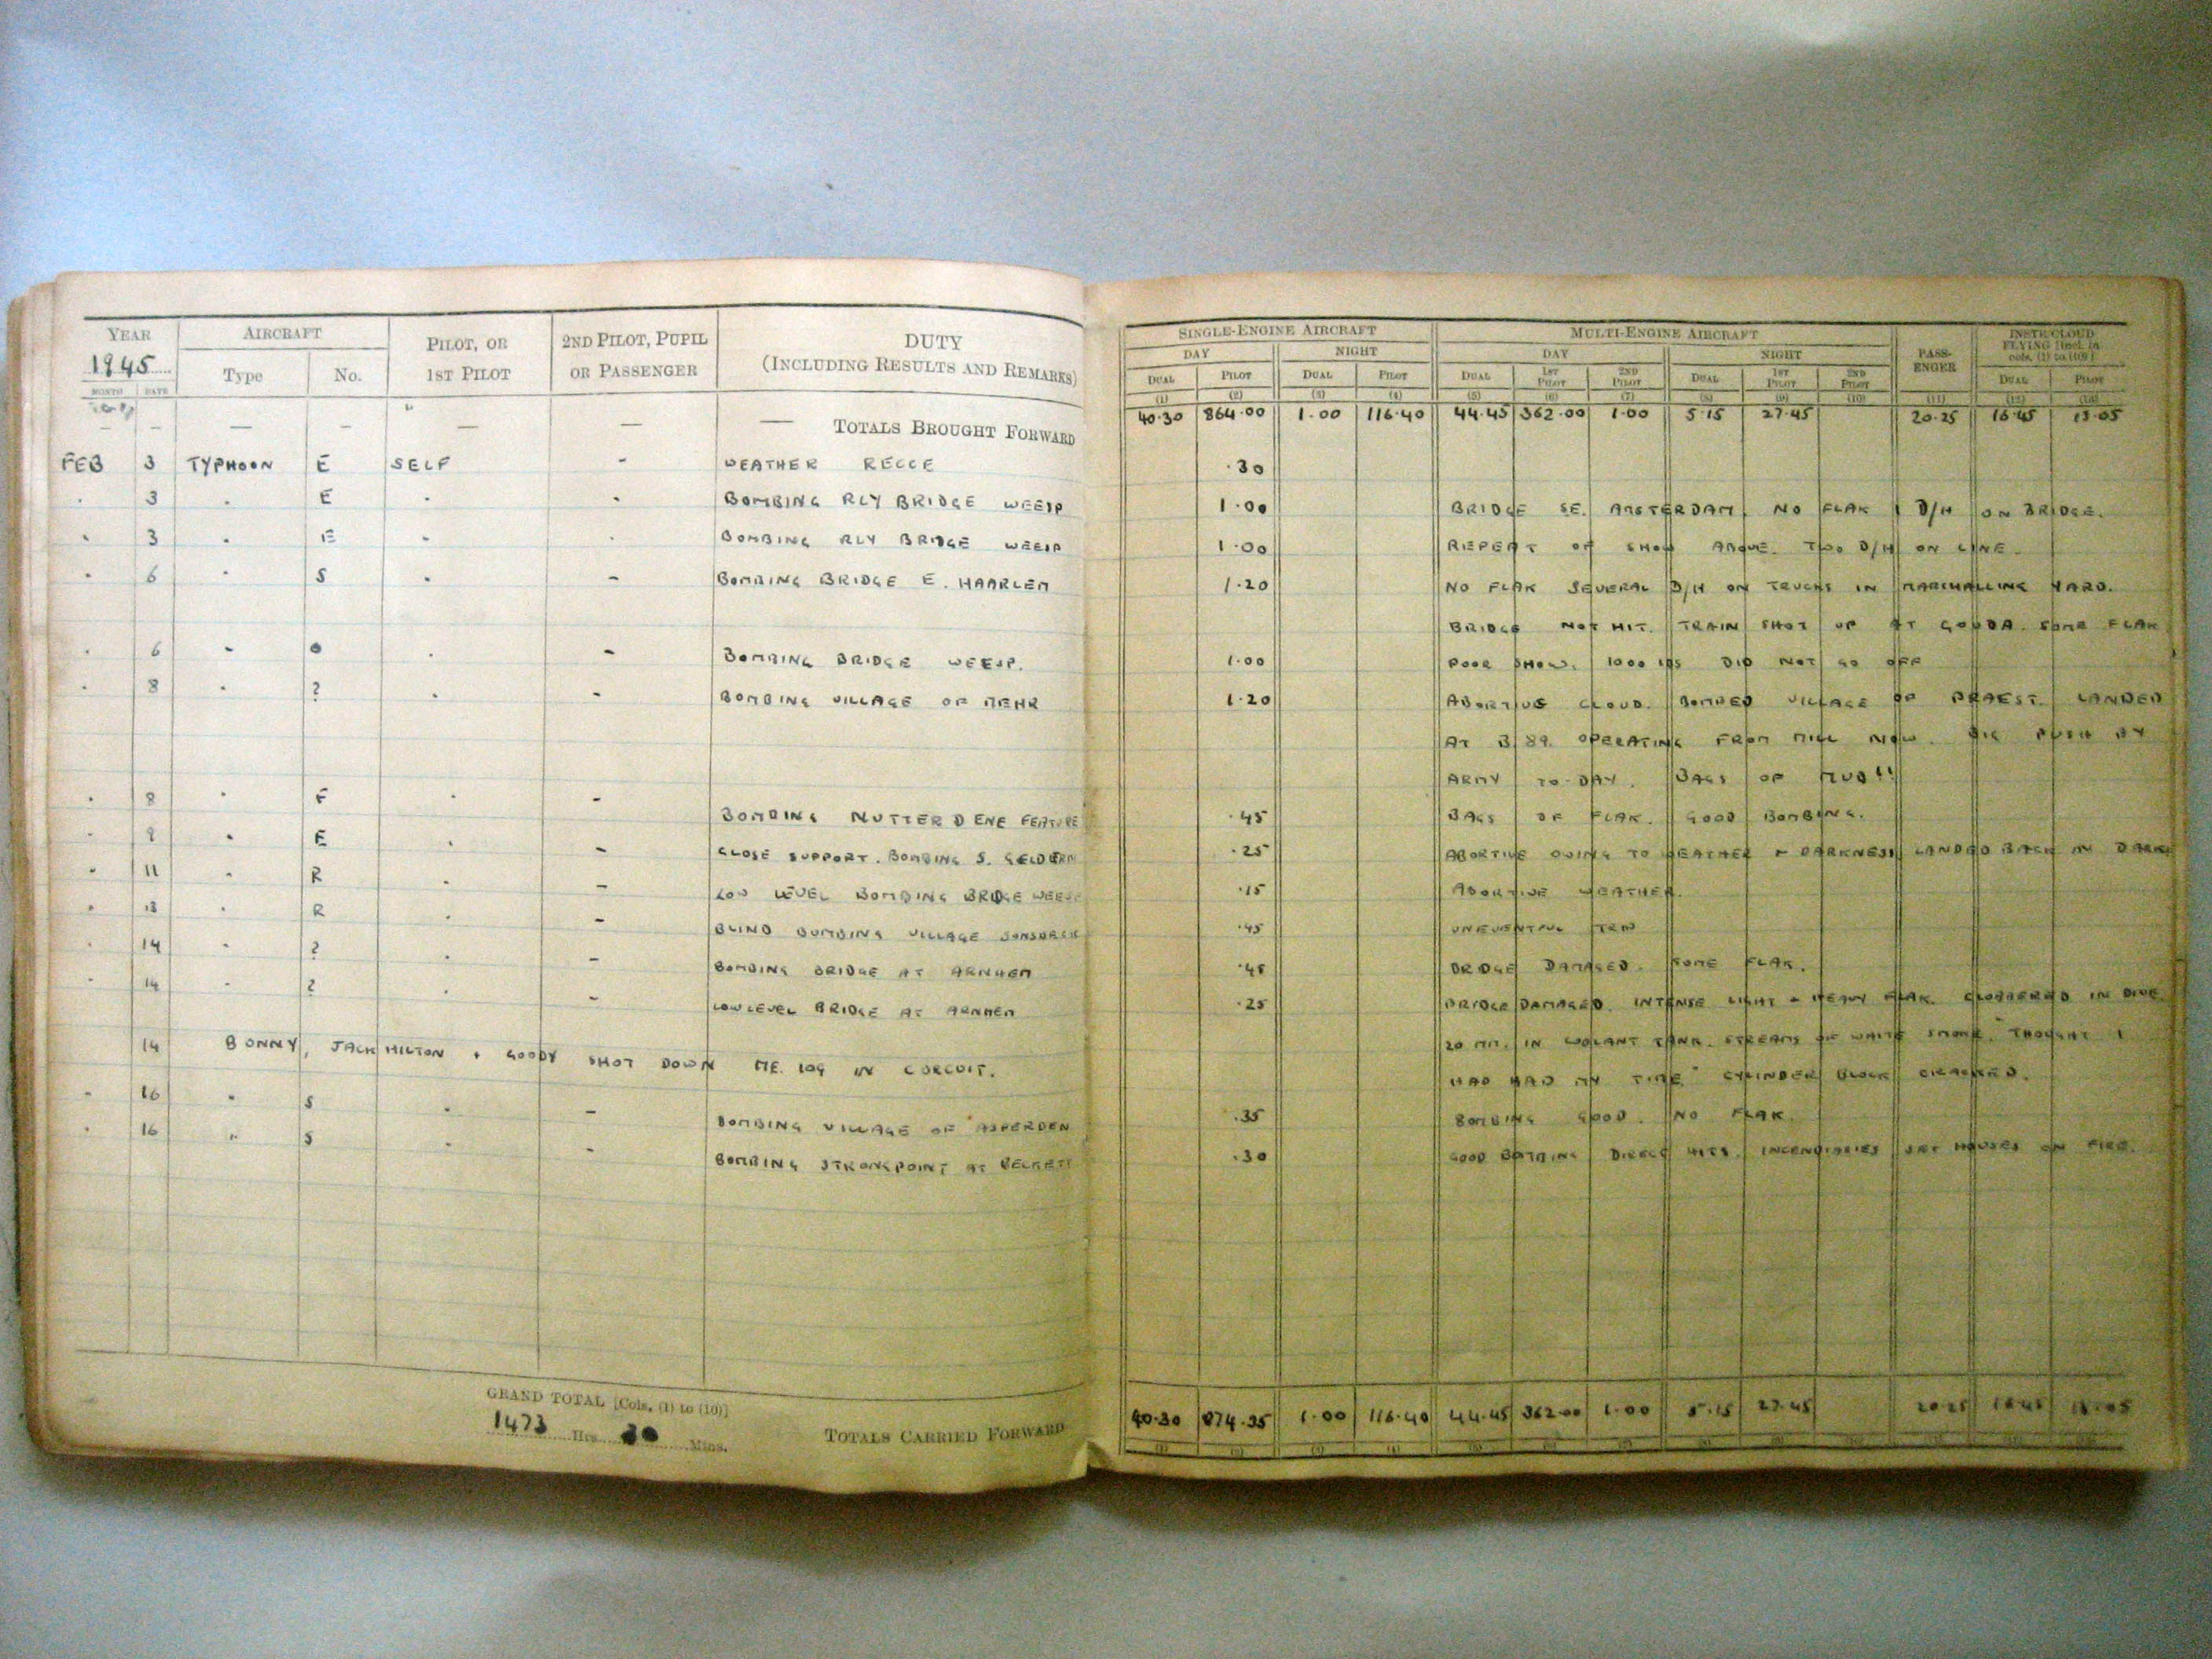 YEAR AIRCRAFT PILOT, OR 1ST PILOT 2ND PILOT, PUPIL OR PASSENGER DUTY (INCLUDING RESULTS AND REMARKS) SINGLE-ENGINE AIRCRAFT MULTI-ENGINE AIRCRAFT PASS- ENGER
1945 Type No. DAY NIGHT DAY NIGHT
MONTH DATE DUAL PILOT DUAL PILOT DUAL 1ST PILOT 2ND PILOT DUAL 1ST PILOT 2ND PILOT DUAL PILOT
— — — — — — — TOTALS BROUGHT FORWARD 40.30 864.00 1.00 116.40 44.45 362.00 1.00 5.15 27.45 20.25 16.45 15.05
FEB 3 TYPHOON E SELF - WEATHER RECCE .30
. 3 . E . . BOMBING RLY BRIDGE WEESP 1.00 BRIDGE SE. AMSTERDAM NO FLAK 1 D/H ON BRIDGE.
. 3 . E . . BOMBING RLY BRIDGE WEESP 1.00 REPEAT OF SHOW ABOVE. TWO D/H ON LINE.
. 6 . S . - BOMBING BRIDGE E. HAARLEM 1.20 NO FLAK SEVERAL D/H ON IN MARSHALLING YARD.
BRIDGE NOT HIT. TRAIN SHOT UP AT GOUDA. SOME FLAK
. 6 - . - BOMBING BRIDGE WEESP. 1.00 POOR SHOW. 1000 LBS DID NOT GO OFF
. 8 . ? . - BOMBING VILLAGE OF MEHR 1.20 ABORTIVE CLOUD. BOMBED VILLAGE LANDED
AT B/89. OPERATING FROM NOW. BY
ARMY TO-DAY. BAGS OF
. 8 . F . - BOMBING NUTTERDENE FEATURE .45 BAGS OF FLAK. GOOD BOMBING.
. 9 . E . - CLOSE SUPPORT. BOMBING S. GELDERN .25 ABORTIVE OWING TO WEATHER + DARKNESS LANDED BACK IN DARK
. 11 . R . - LOW LEVEL BOMBING BRIDGE WEESP .15 ABORTIVE WEATHER.
. 13 . R . - BLIND BOMBING VILLAGE SONSBECK .45 UNEVENTFUL TRIP
. 14 . ? . - BOMBING BRIDGE AT ARNHEM .45 BRIDGE DAMAGED. SOME FLAK.
. 14 . ? . - LOW LEVEL BRIDGE AT ARNHEM .25 BRIDGE DAMAGED. INTENSE LIGHT + HEAVY FLAK. IN DIVE
20 MM. IN COOLANT TANK. STREAMS OF WHITE SMOKE. THOUGHT I
14 BONNY, JACK HILTON + GOODY SHOT DOWN ME. 109 IN CIRCUIT. HAD HAD MY TIME CYLINDER BLOCK CRACKED.
. 16 " S . - BOMBING VILLAGE OF ASPERDEN .35 BOMBING GOOD. NO FLAK.
. 16 " S . - BOMBING STRONGPOINT AT .30 GOOD BOMBING DIRECT HITS. INCENDIARIES SET HOUSES ON FIRE.
GRAND TOTAL [Cols. (1) to (10)]
1473 Hrs. Mins. TOTALS CARRIED FORWARD 40.30 874.35 1.00 116.40 44.45 362.00 1.00 5.15 27.45 20.25 16.45 15.05